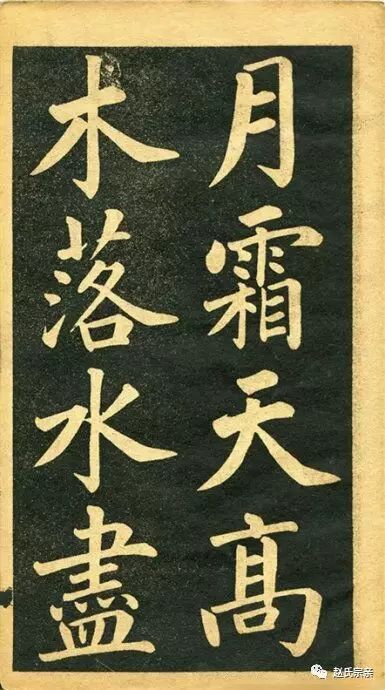 月霜天髙
木落水盡
赵氏宗亲